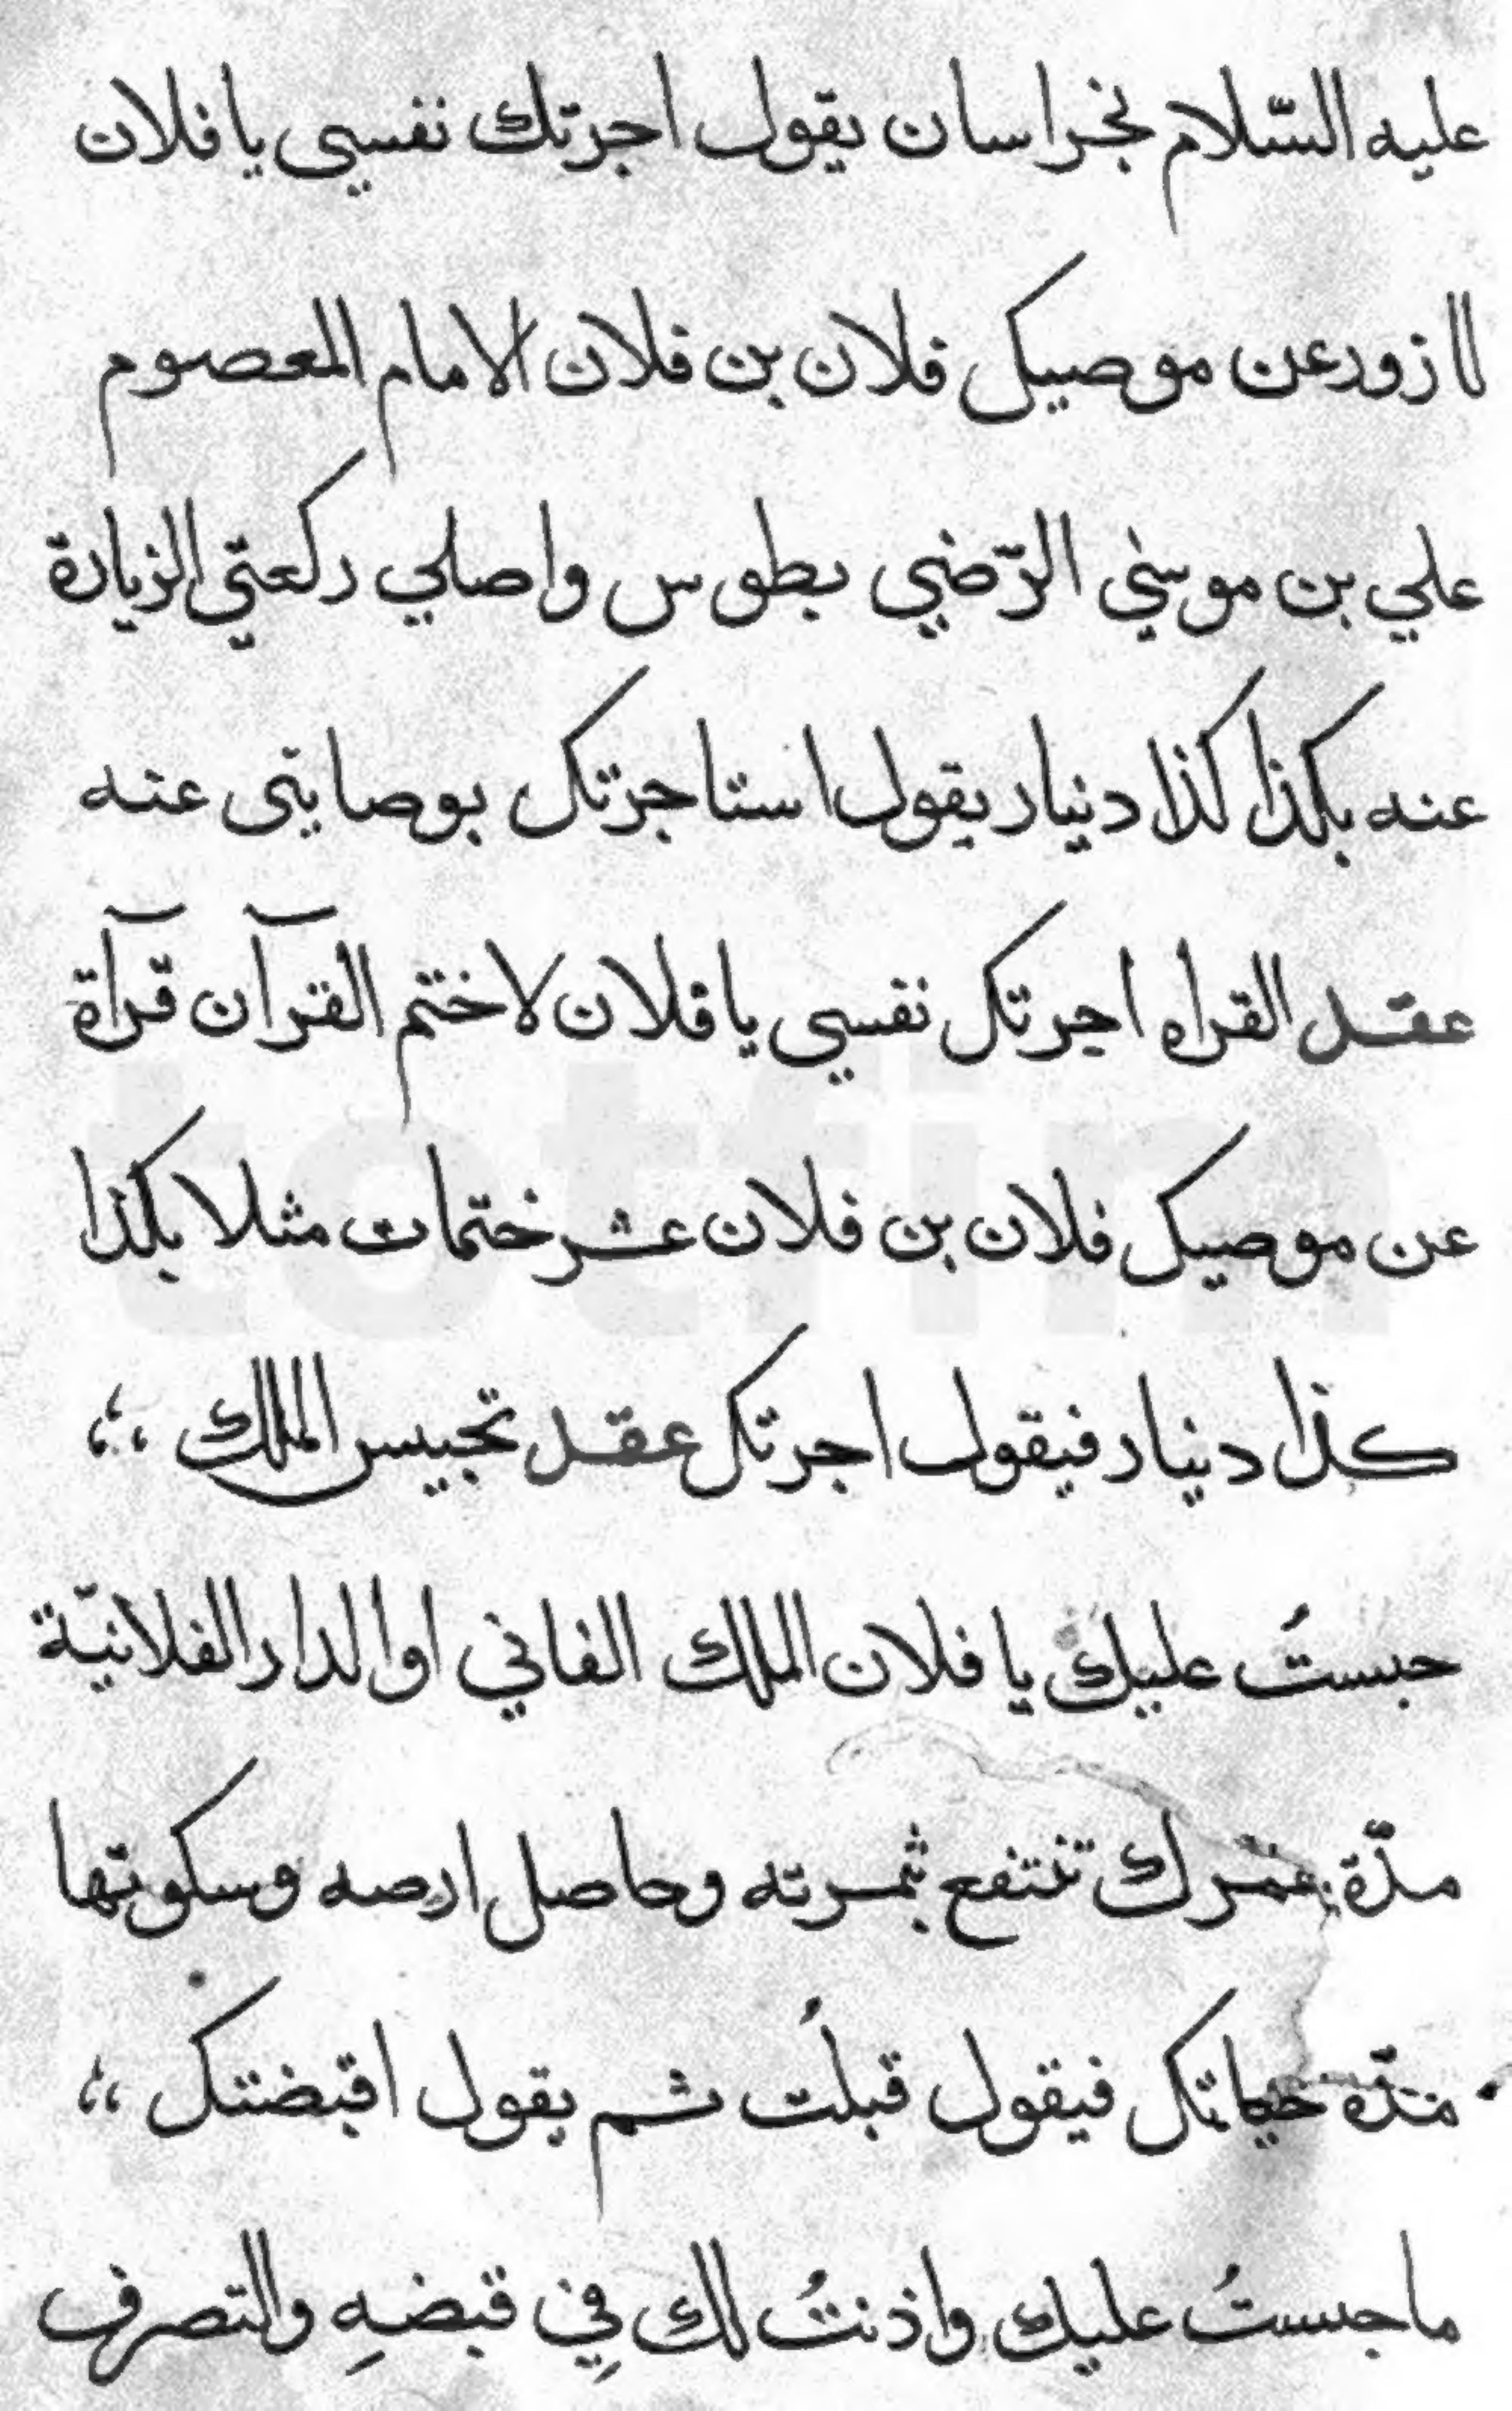 عليه السّلام بخراسان يقول اجرتك نفسي يا فلان
لا ازور عن موصيك فلان بن فلان الامام المعصوم
علي بن موسىٰ الرّضي بطوس واصلي ركعتي الزيارة
عنه بكذا كذا دينار يقول استاجرتك بوصايتى عنه
عقد القراه اجرتك نفسي يا فلان لاختم القرآن قرآة
عن موصيك فلان بن فلان عشر ختمات مثلا بكذا
كذا دينار فيقول اجرتك عقد تحبيس الملك
حبستُ عليك يا فلان الملك الفاني او الدار الفلانيّة
مدّة عمرك تنتفع بثمرته وحاصل ارصه وسكوتها
مدّة حياتك فيقول قبلُت ثم يقول اقبضتك
ما حبستُ عليك واذنتُ لك فِي قبضهِ والتصرف
totfim